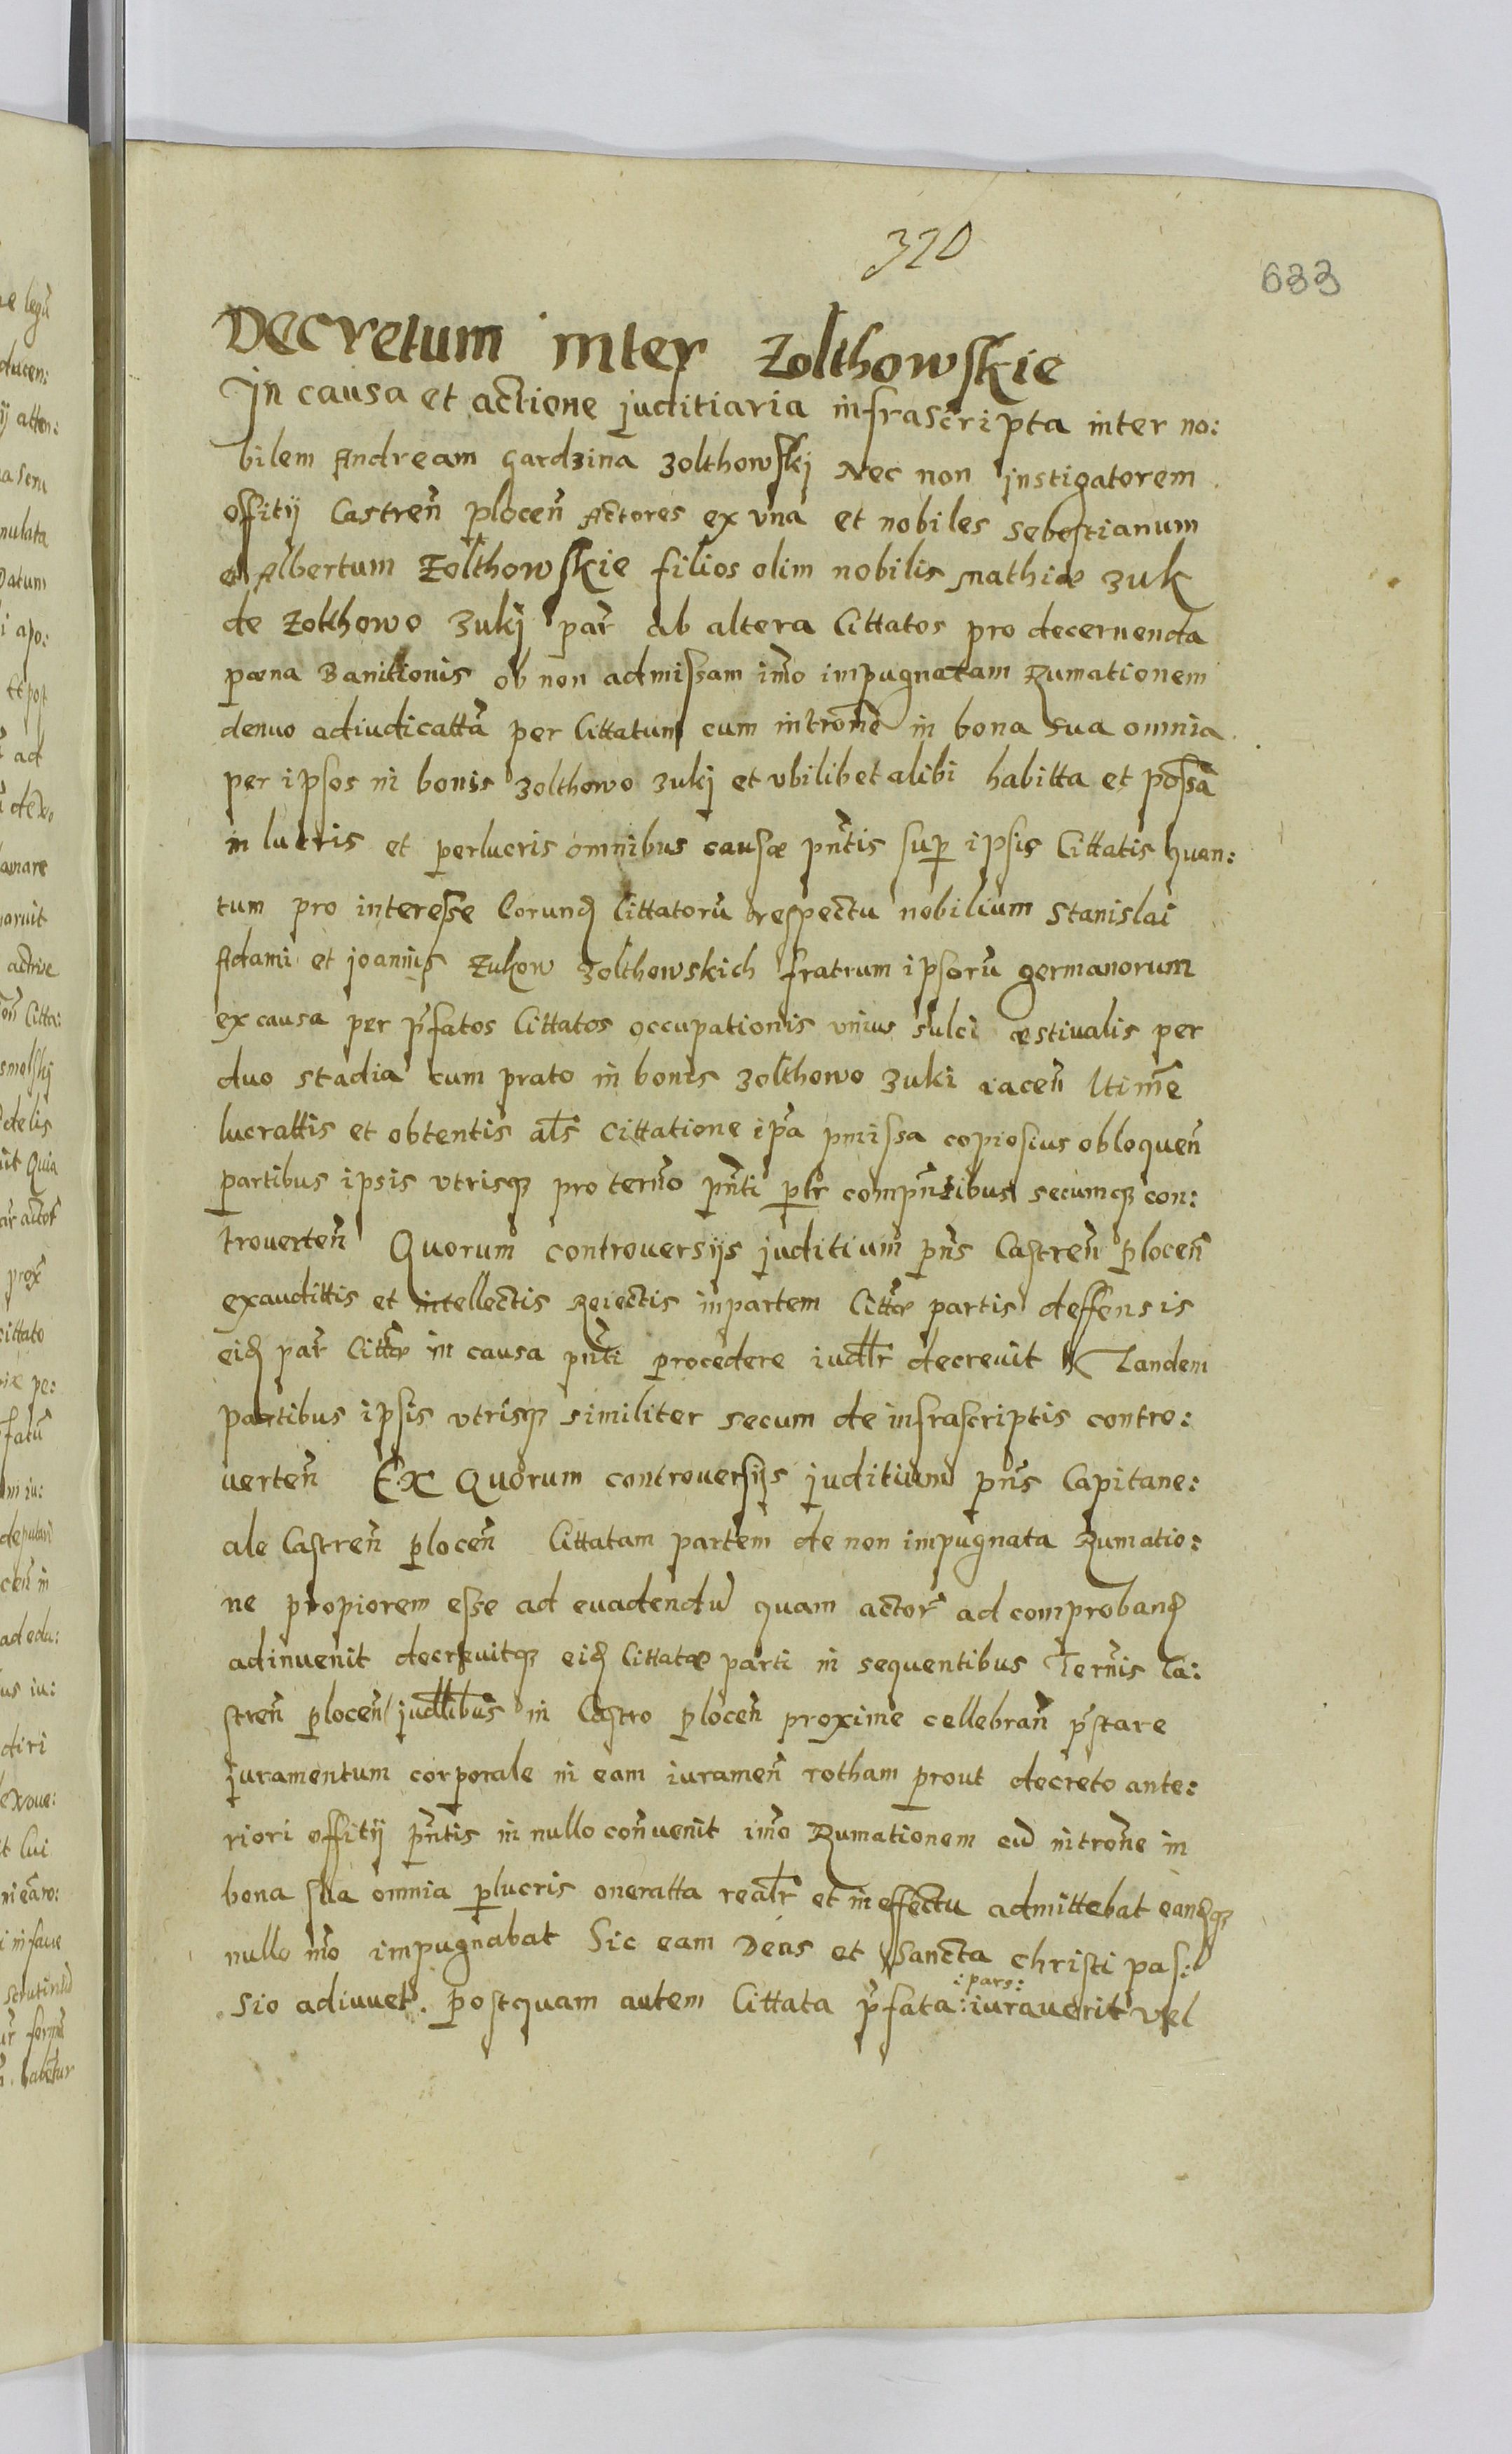 320
633
Decretum inter Zolthowskie
In causa et actione juditiaria infrascripta inter no:
bilem Andream Gardzina Zolthowskj Nec non instigatorem
offitij Castren̄ plocen̄ Actores ex vna et nobiles Sebestianum
et Albertum Zolthowskie filios olim nobilis Mathiæ Zuk
de Zolthowo Zukj par̄ ab altera Cittatos pro decernenda
pæna Banitionis ob non admissam im̄o impugnatam Rumationem
denuo adiudicattā per Cittatum cum introm̄e in bona sua omnia
per ipsos in bonis Zolthowo Zukj et vbilibet alibi habitta et poss̄a
in lucris et perlucris omnibus causæ pn̄tis sup ipsis Cittatis quan:
tum pro interesse Eorunḍ Cittatorū respectu nobilium Stanislai
Adami et joannis Zukow Zolthowskich fratrum ipsorū germanorum
ex causa per p̄fatos Cittatos occupationis vnius sulci æstiualis per
duo stadia cum prato in bonis Zolthowo Zuki iacen̄ ltim̄e
lucrattis et obtentis al̄s Cittatione ip̄a pmissa copiosius obloquen̄
partibus ipsis vtrisqȝ pro term̄o pn̄ti pl̄r compn̄tibus secumqȝ con:
trouerten̄ Quorum controuersijs juditium pn̄s Castren̄ plocen̄
exaudittis et intellectis Reiectis inpartem Citt̄æ partis deffensis
eiḍ par̄ Citt̄æ in causa pn̄ti procedere iudl̄r decreuit Tandem
partibus ipsis vtrisqȝ similiter secum de infrascriptis contro:
uerten̄ Ex Quorum controuersijs juditium pn̄s Capitane:
ale Castren̄ plocen̄ Cittatam partem de non impugnata Rumatio:
ne propiorem esse ad euadendū quam actor̄ ad comprobanḍ
adinuenit decreuitqȝ eiḍ Cittatæ parti in sequentibus Term̄is Ca:
stren̄ plocen̄ judl̄ibus in Castro plocen̄ proxime cellebran̄ p̄stare
juramentum corporale in eam iuramen̄ rotham prout decreto ante:
riori offitij pn̄tis in nullo conuenit im̄o Rumationem cū introm̄e in
bona sua omnia plucris oneratta real̄r et in effectu admittebat eanḍqȝ
nullo m̄o impugnabat Sic eam Deus et Sancta Christi pas:
sio adiuuet. postquam autem Cittata p̄fata :iurauerit vel
: pars: